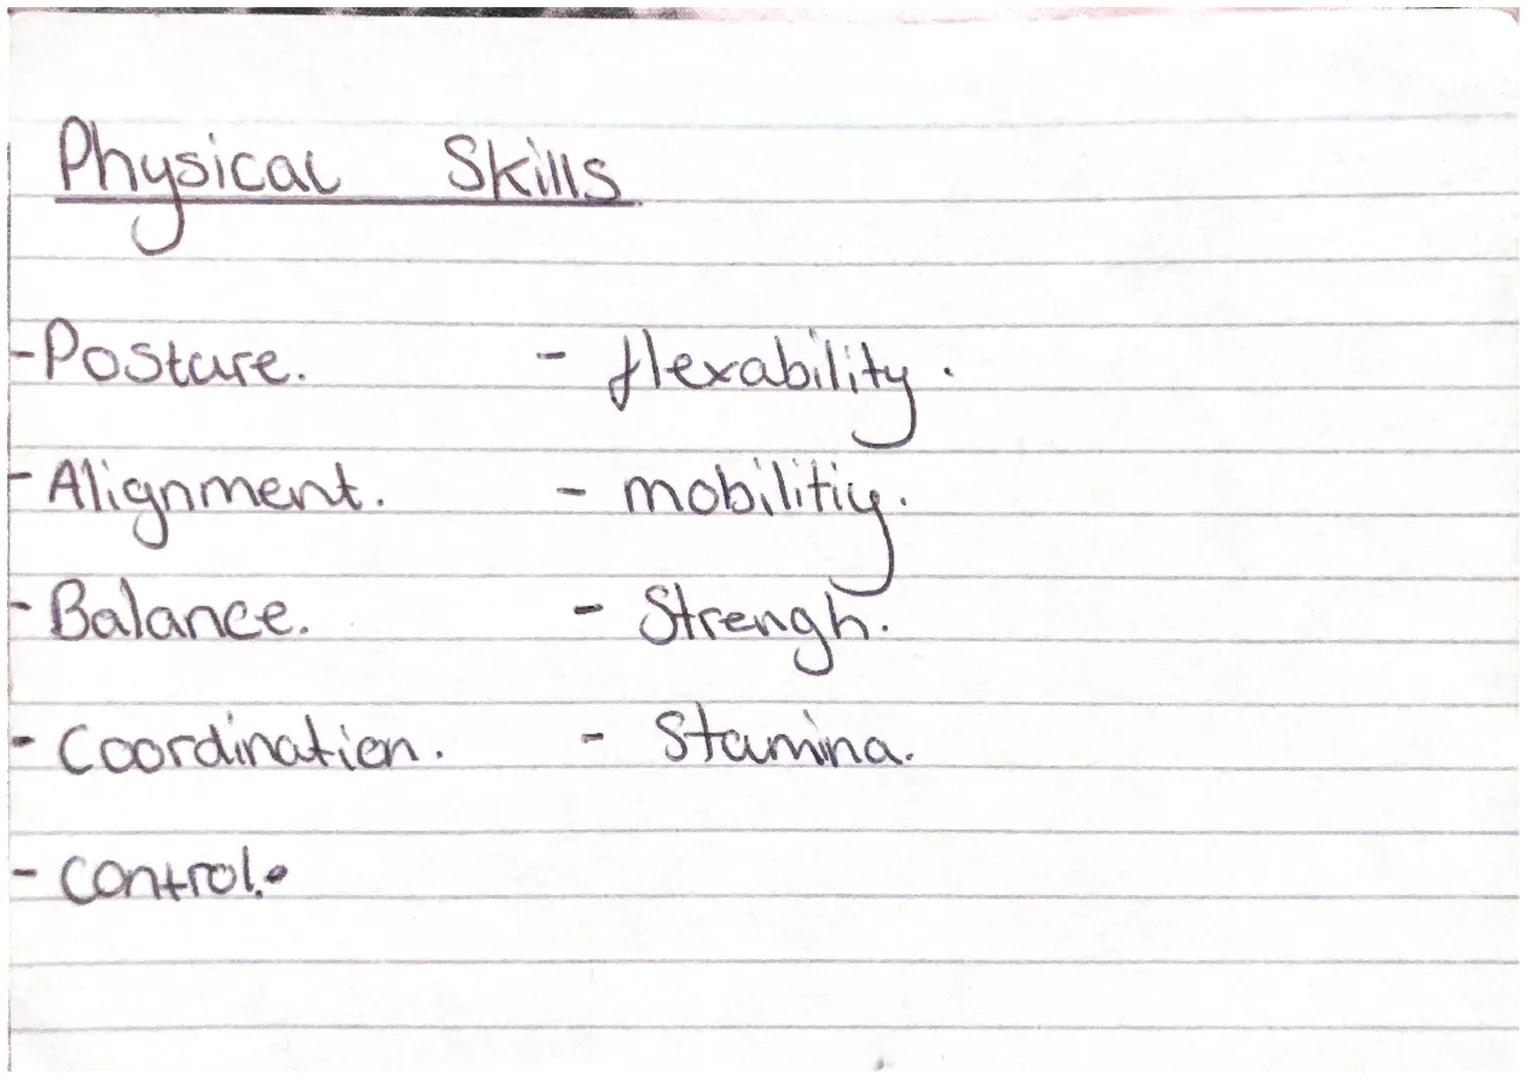 Physical Skills
- Posture. - flexability.
- Alignment. - mobilitiy.
- Balance. - Strengh.
- Coordination. - Stamina.
- Control.